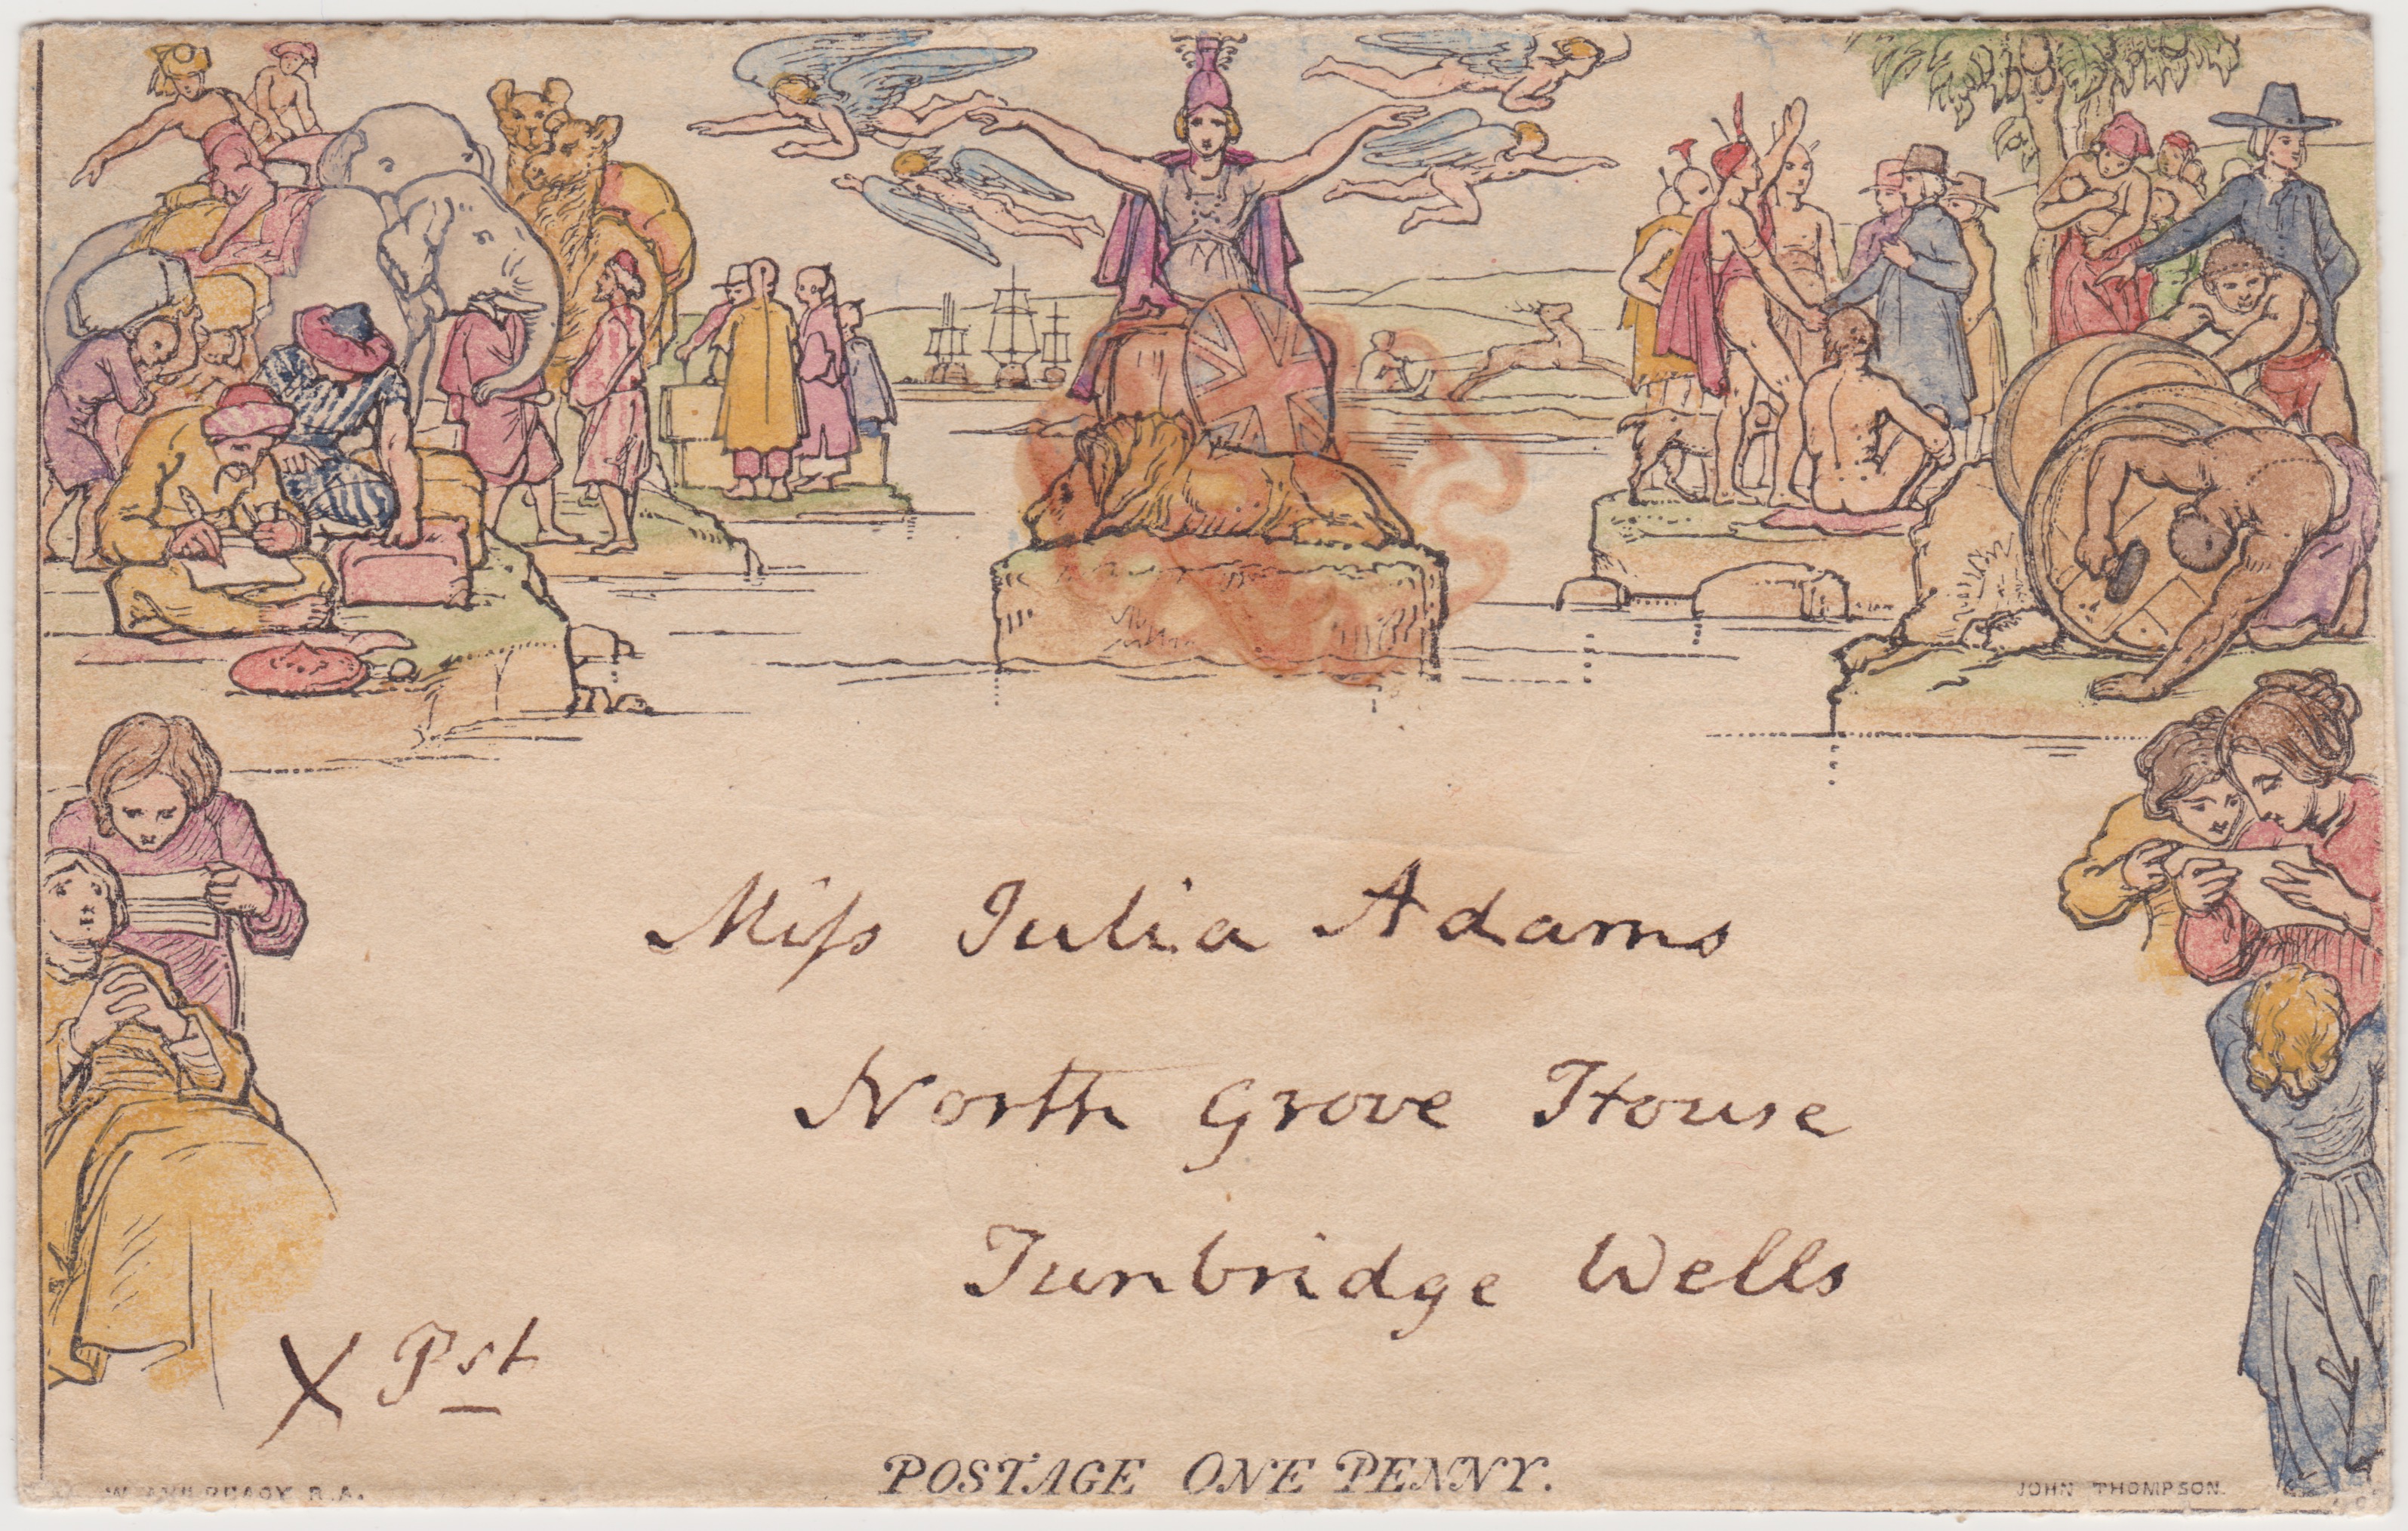 Miſs Julia Adams
North Grove House
Tunbridge Wells
X Pst
POSTAGE ONE PENNY.
W. MULREADY R.A.
JOHN THOMPSON.